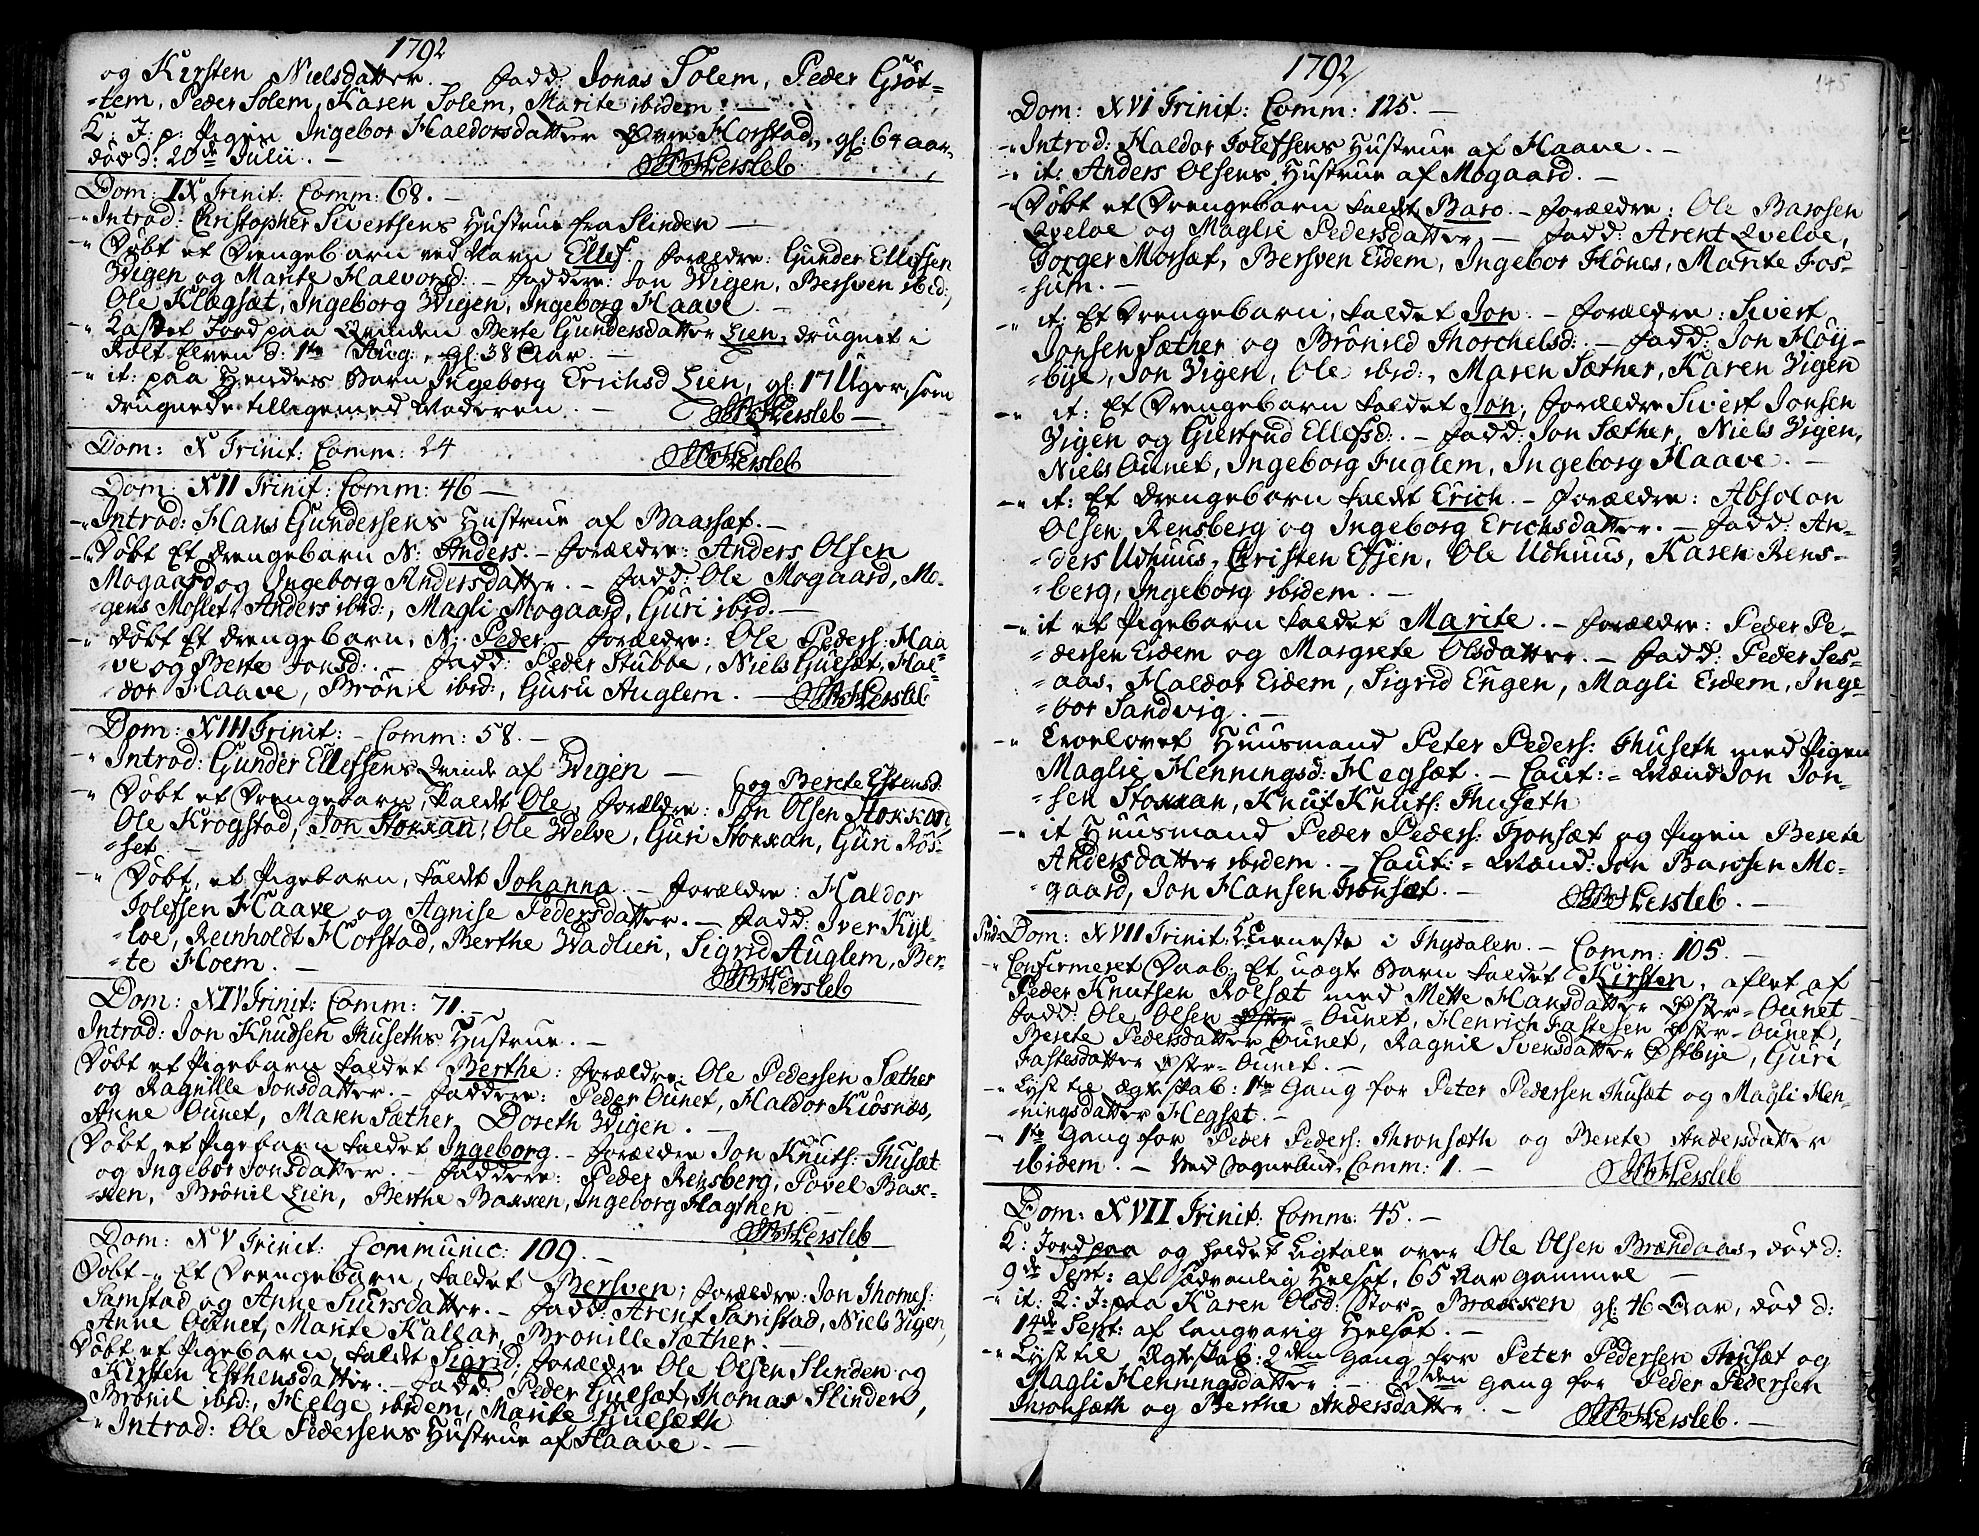 1792
og Kirsten Nielsdatter. — Fadd: Jonas Solem, Peder Grøt-
tem, Peder Solem, Karen Solem, Marite ibidem. —
K: J: p: Pigen Ingebor Haldorsdatter Øvre Horstad, gl: 64 aar,
død d: 20de Julii. — Hersleb
Dom: IX Trinit: Comm: 68. —
Introd: Christopher Sivertsens Hustrue fra Slinden —
Døbt et Drengebarn ved Navn Ellef. Forældre: Gunder Ellefsen
Wigen og Marite Halvorsd: — Faddere: Jon Wigen, Bersven ibid:
Ole Klægsæt, Ingeborg Wigen, Ingeborg Haave —
Kastet Jord paa Qvinden Berte Gundersdatter Lien, drugnet i
Rolt Elven d: 1te Aug:, gl: 38 Aar. —
it: paa Hendes Barn Ingeborg Erichsd Lien, gl: 17 Uger, som
drugnede tilligemed Moderen. — Hersleb —
Dom: X Trinit: Comm: 24 Hersleb
Dom: XII Trinit: Comm: 46 —
Introd: Hans Gundersens Hustrue af Baarsæt. —
Døbt Et Drengebarn N: Anders. — Forældre: Anders Olsen
Mogaard og Ingeborg Andersdatter. — Fadd: Ole Mogaard, Mo-
gens Moslet, Anders ibid:, Magli Mogaard, Guri ibid. —
Døbt Et Drengebarn, N: Peder — Forældre: Ole Peders: Haa
ve og Berte Jonsd:. — Fadd: Peder Stubbe, Niels Gulsæt, Hal-
dor Haave, Brönil ibid:, Guru Auglem. — Hersleb
Dom: XIII Trinit: — Comm: 58. —
Introd: Gunder Ellefsens Qvinde af Wigen —
(og Berete Estensd:
Døbt et Drengebarn, kaldet Ole, Forældre: Jon Olsen Stokkan
Ole Krogstad, Jon Stokkan, Ole Welve, Guri Stokkan, Guri Røs-
set —
Døbt, et Pigebarn, kaldet Johanna. — Forældre: Haldor
Jolefsen Haave og Agnise Pedersdatter. — Fadd: Iver Kyl-
loe, Reinholdt Horstad, Berthe Wadlien, Sigrid Auglem, Ber-
te Hoem. — Hersleb
Dom: XIV Trinit: Comm: 71. —
Introd: Jon Knudsen Thuseths Hustrue. —
Døbt et Pigebarn kaldet Berthe: Forældre: Ole Pedersen Sæther
og Ragnille Jonsdatter. — Faddere: Peder Ounet, Haldor Kiøsnøs,
Anne Ounet, Maren Sæther, Doreth Wigen. —
Døbt et Pigebarn kaldet Ingeborg. — Forældre Jon Knuts: Thusæt
og Ingebor Jonsdatter. — Faddere: Peder Rensberg, Povel Bak-
ken, Brönil Lien, Berthe Bakken, Ingeborg Hagthen —
Hersleb
Dom: XV Trinit: Communic: 109. —
Døbt — Et Drengebarn, kaldet Bersven; Forældre: Jon Thomes:
Samstad og Anne Siursdatter. — Fadd: Arent Samstad, Niels Wigen,
Anne Ounet, Marite Kallar, Bronille Sæther. —
Døbt et Pigebarn, kaldet Sigrid; Forældre Ole Olsen Slinden og
Kirsten Esthensdatter. — Fadd: Peder Gulsæt, Thomas Slinden,
Brönil ibid:, Helge ibidem, Marite Gulseth
Introd: Ole Pedersens Hustrue af Haave. —
1792
145
Dom: XVI Trinit: Comm: 125. —
Introd: Haldor Jolefsens Hustrue af Haave. —
it: Anders Olsens Hustrue af Mogaard. —
Døbt et Drengebarn kaldet Baro. — Forældre: Ole Barosen
Qveloe og Maglie Pedersdatter — Fadd: Arent Qveloe,
Torger Morset, Bersven Eidem, Ingebor Hønes, Marite Fos-
sum. —
it: Et Drengebarn, kaldet Jon. — Forældre: Sivert
Jonsen Sæther og Brönild Thorchelsd:. — Fadd: Jon Höy-
bye, Jon Wigen, Ole ibid:, Maren Sæther, Karen Wigen
it: Et Drengebarn kaldet Jon, Forældre Sivert Jonsen
Wigen og Giertrud Ellefsd:. — Fadd: Jon Sæther, Niels Wigen,
Niels Ounet, Ingeborg Fuglem, Ingeborg Haave. —
it: Et Drengebarn kaldt Erich. — Forældre: Absolon
Olsen Rensberg og Ingeborg Erichsdatter. — Fadd: An-
ders Udhuus, Christen Essen, Ole Udhuus, Karen Rens-
berg, Ingeborg ibidem. —
it et Pigebarn kaldet Marite. — Forældre: Peder Pe-
dersen Eidem og Margrete Olsdatter. — Fadd: Peder Ses-
aas, Haldor Eidem, Sigrid Engen, Magli Eidem, Inge-
bor Sandvig. —
Troelovet Huusmand Peter Peders: Thuseth med Pigen
Maglie Hennings d: Hegsæt. — Caut: = Mænd Jon Jon-
sen Stokkan, Knut Knuts: Thuseth
it Huusmand Peder Peders: Tronsæt og Pigen Berete
Andersdatter ibidem. — Caut: = Mænd: Jon Barosen Mo-
gaard, Jon Hansen Tronsæt. — Hersleb. —
Dom: XVII Trinit: Tieneste i Thydalen. — Comm: 105. —
Confirmeret Daab. Et uægte Barn kaldet Kirsten, aflet af
Peder Knutsen Rolsæt med Mette Hansdatter Øster-Ounet
Fadd: Ole Olsen Øster-Ounet, Henrich Fastesen Øster-Ounet,
Berete Pedersdatter Ounet, Ragnil Svensdatter Østbye, Guri
Fastesdatter Øster-Ounet. —
Lyst til Ægteskab: 1te Gang for Peter Pedersen Thusæt og Magli Hen-
ningsdatter Hegsæt. —
1te Gang for Peder Peders: Thronsæth og Berete Andersdatter
ibidem. — Ved Sognebud, Comm: 1. — Hersleb
Dom: XVII Trinit: Comm: 45. —
K: Jord paa og holdet Ligtale over Ole Olsen Brændaas, død d:
9de Sept: af sædvanlig Helsot, 65 Aar gammel —
it: K: J: paa Karen Olsd: Stor-Brækken gl: 46 Aar, død d:
14de Sept: af langvarig Helsot. —
Lyst til Ægteskab: 2den Gang for Peter Pedersen Thusæt og
Magli Henningsdatter — 2den Gang for Peder Pedersen
Thronsæth og Berthe Andersdatter. — Hersleb. —